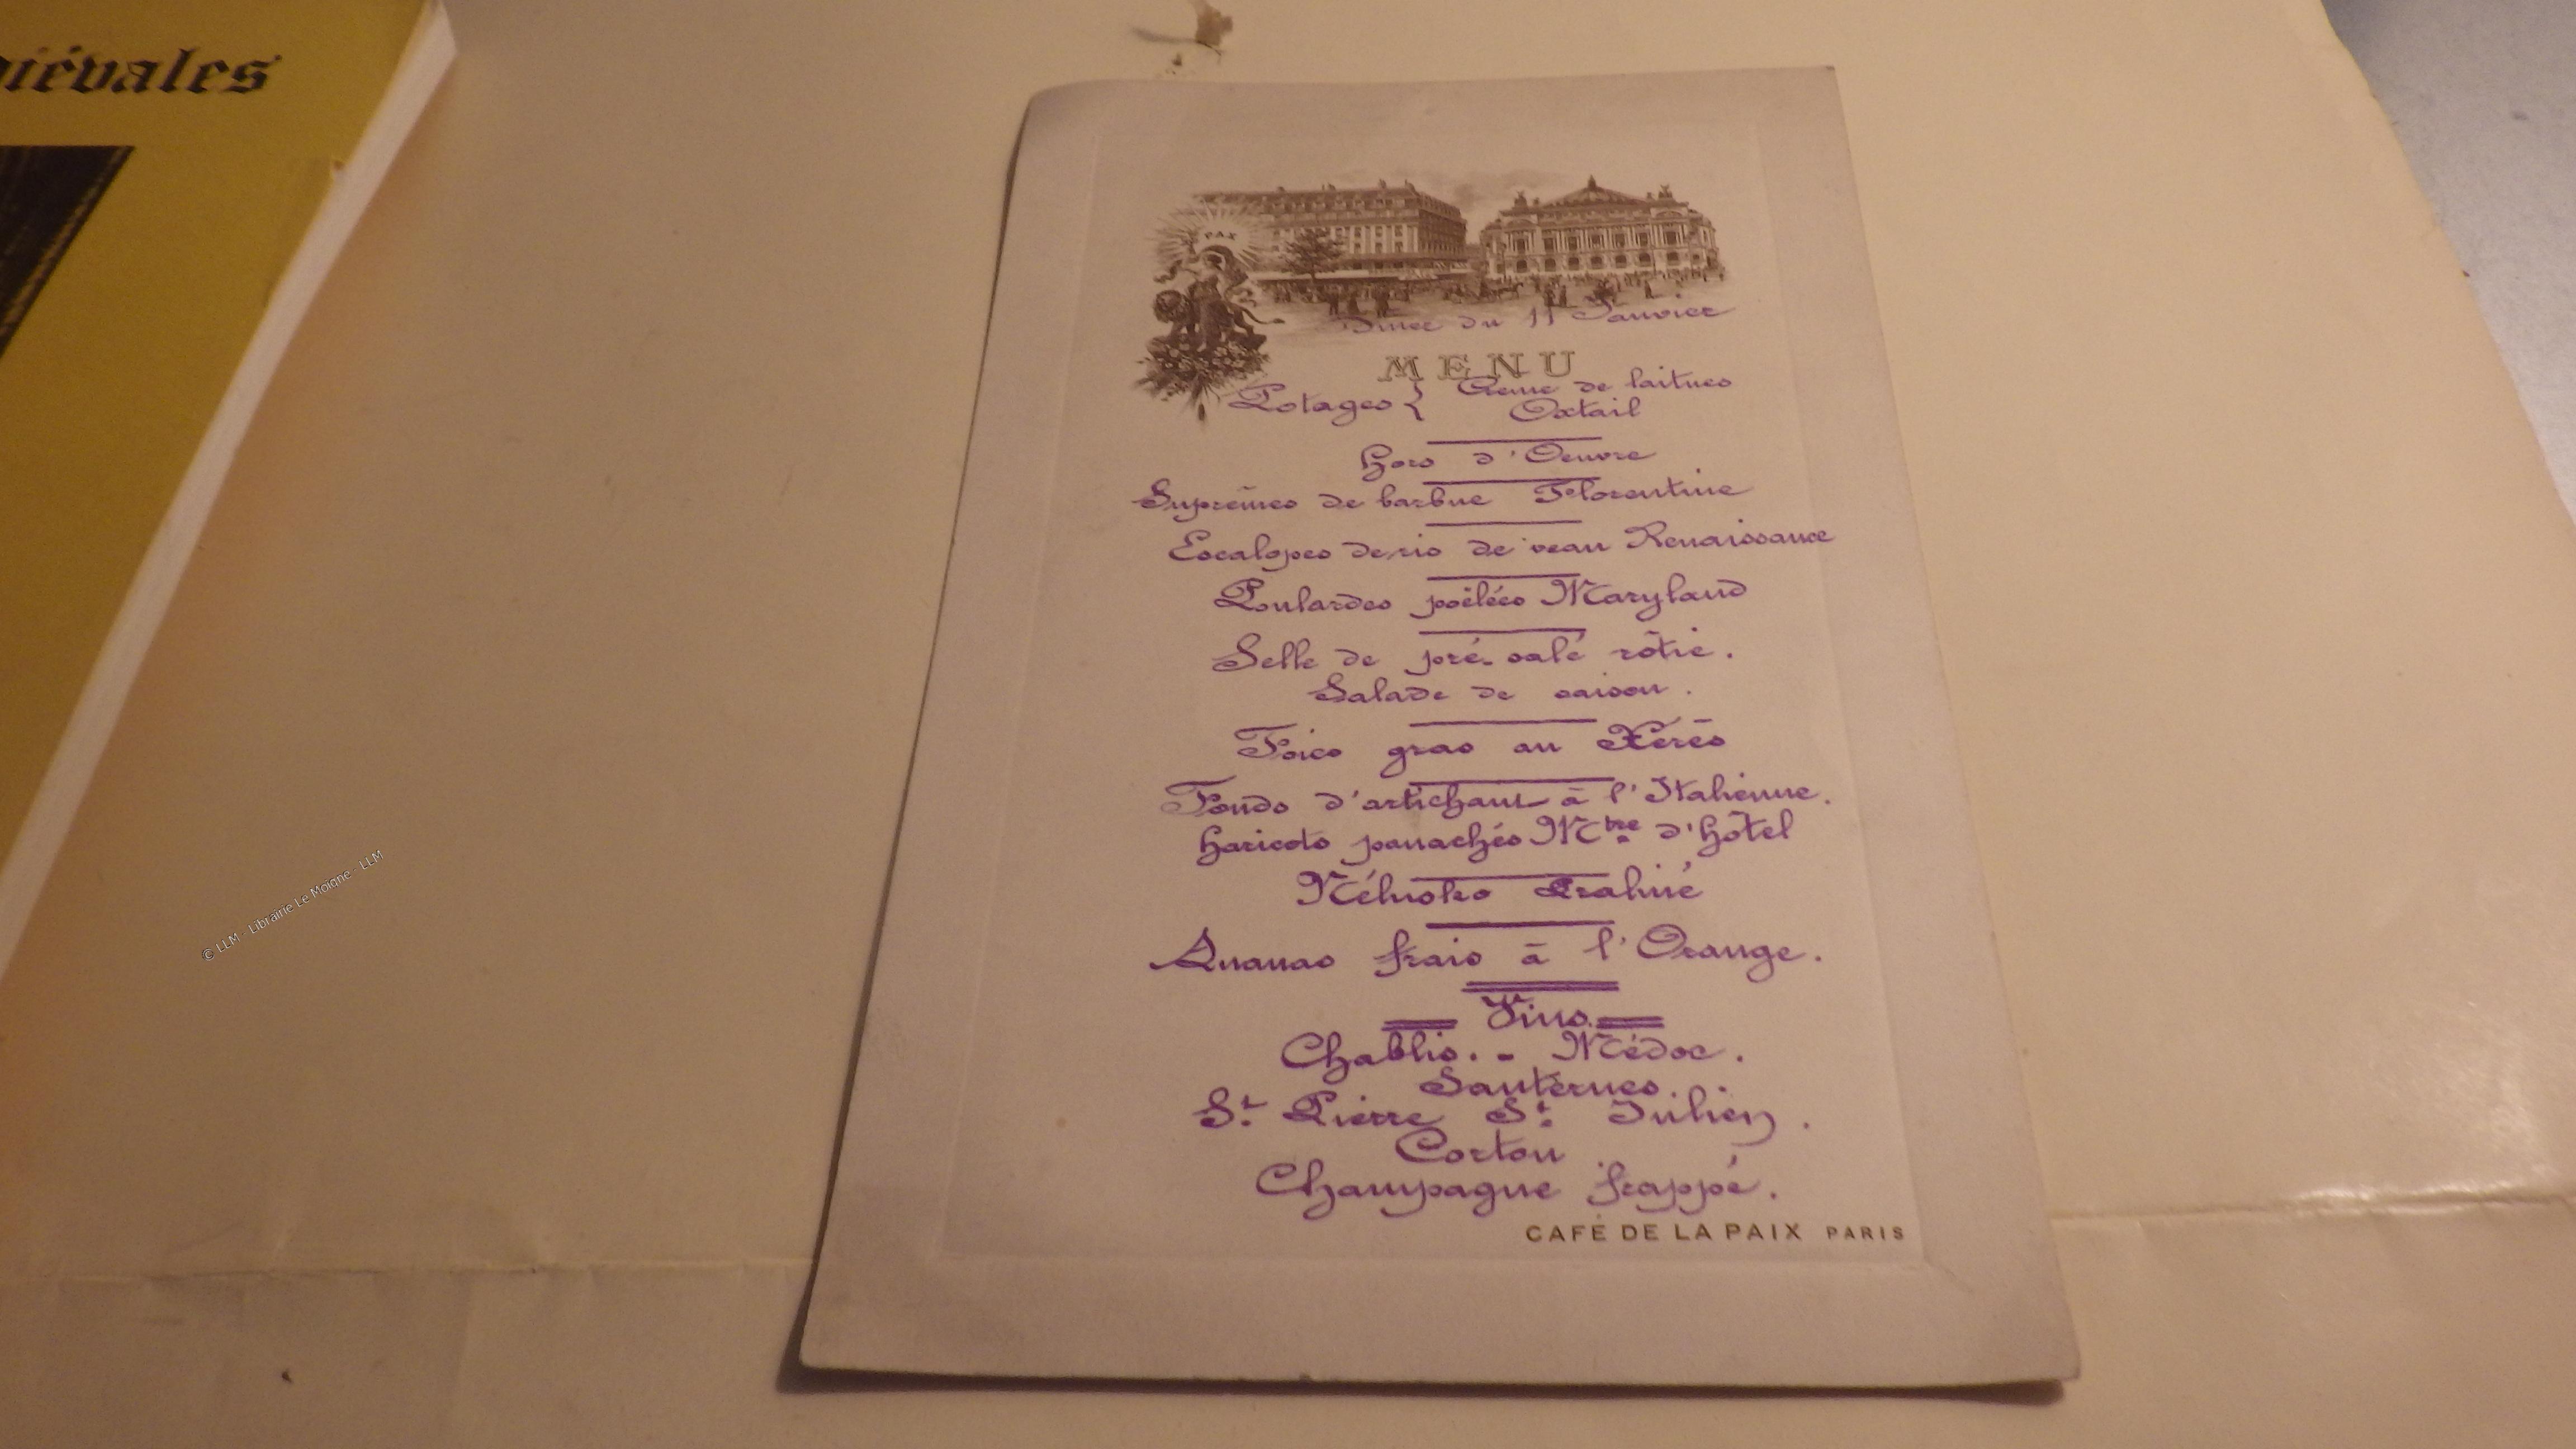 iévales
PAX
Dîner du 11 Janvier
MENU
Potages { Crème de laitues
Oxtail
Hors d'Oeuvre
Suprêmes de barbue Florentine
Escalopes de ris de veau Renaissance
Poulardes poêlées Maryland
Selle de pré-salé rôtie.
Salade de saison.
Foies gras au Xérès
Fonds d'artichaut à l'Italienne.
Haricots panachés Mtre d'hôtel
Nélusko Praliné
Ananas frais à l'Orange.
Vins
Chablis. - Médoc.
Sauternes.
St. Pierre St. Julien.
Corton
Champagne frappé.
CAFÉ DE LA PAIX PARIS
© LLM - Librairie Le Moigne - LLM